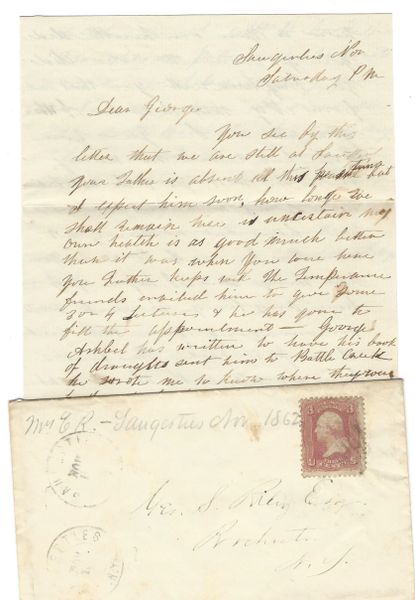 Saugerties Nov
Saturday P M
Dear George
You see by this
letter that we are still at
Your Father is absent at this time but
I expect him soon, how longe we
shall remain here is uncertain my
own health is as good much better
than it was when you were here
You Father keeps with the Temperance
friends invited him to give some
3 or 4 lectures & he has gone to
fill the appointment — George
Ashbel has written to have his book
of draughts sent him to Battle Creek
he wrote me to know where they were
Mrs C R. - Saugerties Nov. 1862
3 3
U S
CENTS
Geo. S. Esq
Rochester
N. Y.